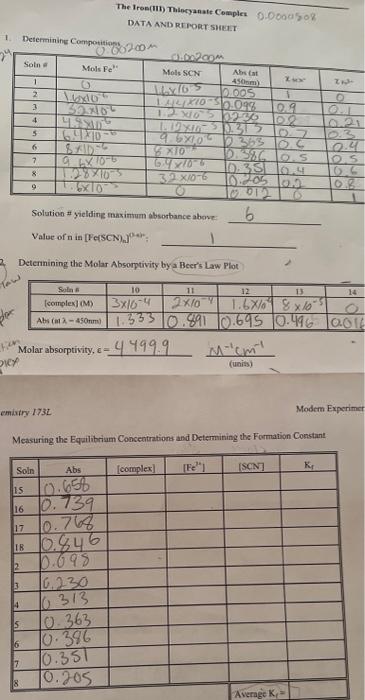 The Iron(III) Thiocyanate Complex 0.0000808
DATA AND REPORT SHEET
1. Determining Compositions 0.00200m 0.00200m
Soln # Mols Fe Mols SCN Abs (at 450nm)
1 0 1.6x10-5 0.005 1 0
2 1.6x10-6 1.44x10-5 0.098 0.9 0.1
3 3.2x10-6 1.2 x10-5 0.230 0.8 0.21
4 4.8x10-6 1.12x10-5 0.313 0.7 0.3
5 6.4x10-6 9.6x10-6 0.363 0.6 0.4
6 8x10-6 8x10-6 0.386 0.5 0.5
7 9.6x10-6 6.4x10-6 0.351 0.4 0.6
8 1.28x10-5 3.2x10-6 0.205 0.2 0.8
9 1.6x10-5 0 0.012 0 1
Solution # yielding maximum absorbance above: 6
Value of n in [Fe(SCN)n](3-n)+: 1
2. Determining the Molar Absorptivity by a Beer's Law Plot
Soln # 10 11 12 13 14
[complex] (M) 3x10-4 2x10-4 1.6x10-4 8x10-5 0
Abs (at λ = 450nm) 1.333 0.891 0.695 0.496
Molar absorptivity, ε = 4499.9 M-1cm-1
(units)
emistry 173L Modern Experimen
Measuring the Equilibrium Concentrations and Determining the Formation Constant
Soln Abs [complex] [Fe3+] [SCN-] Kf
15 0.656
16 0.739
17 0.768
18 0.846
2 0.098
3 0.230
4 0.313
5 0.363
6 0.386
7 0.351
8 0.205
Average Kf =